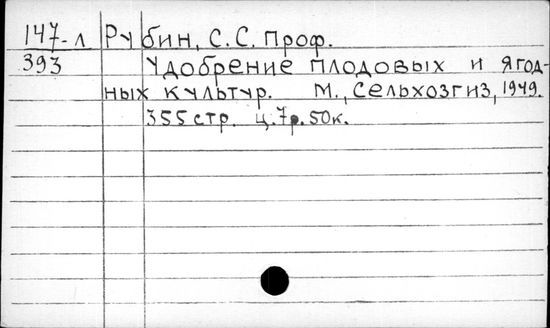 147-л Рубин, С.С. Проф.
393 Удобрение плодовых и ягод-
ных культур. М., Сельхозгиз, 1949.
355 стр. ц. 7р. 50к.